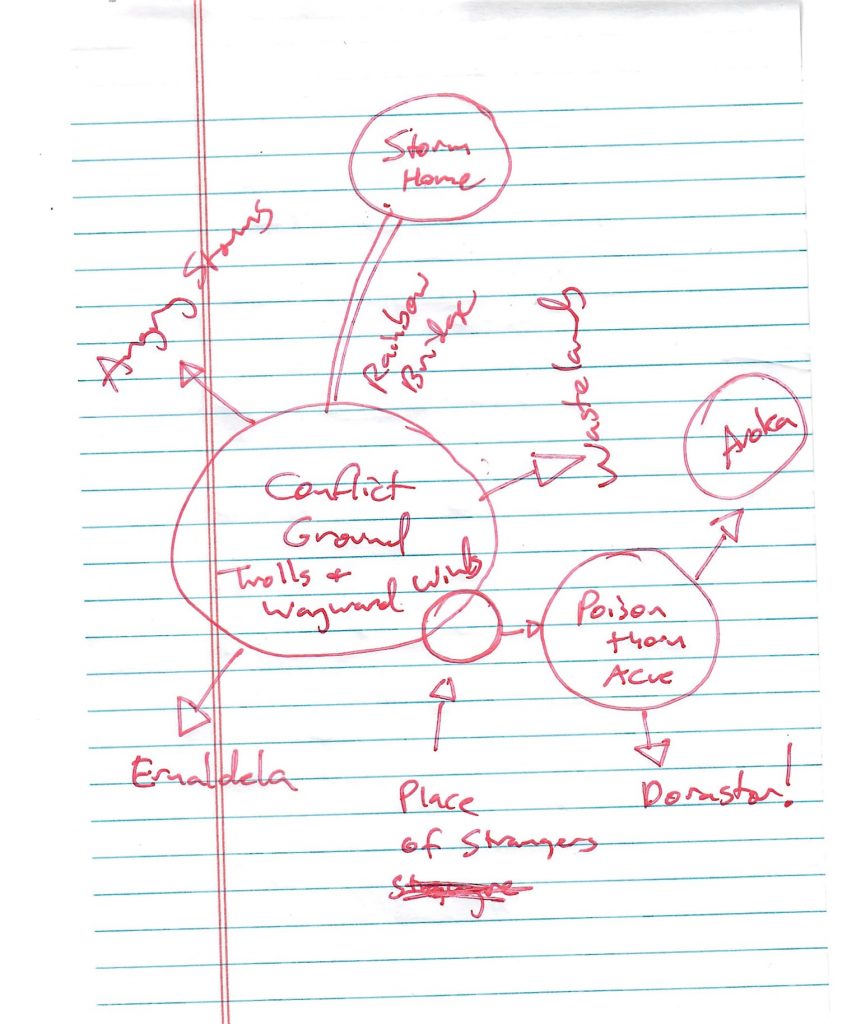 Storm
Home
Angry Storms
Rainbow
Bridge
Waste lands
Aroka
Conflict
Ground
Trolls +
Wayward Winds
Poison
thorn
Acre
Ernaldela
Dorastor!
Place
of Strangers